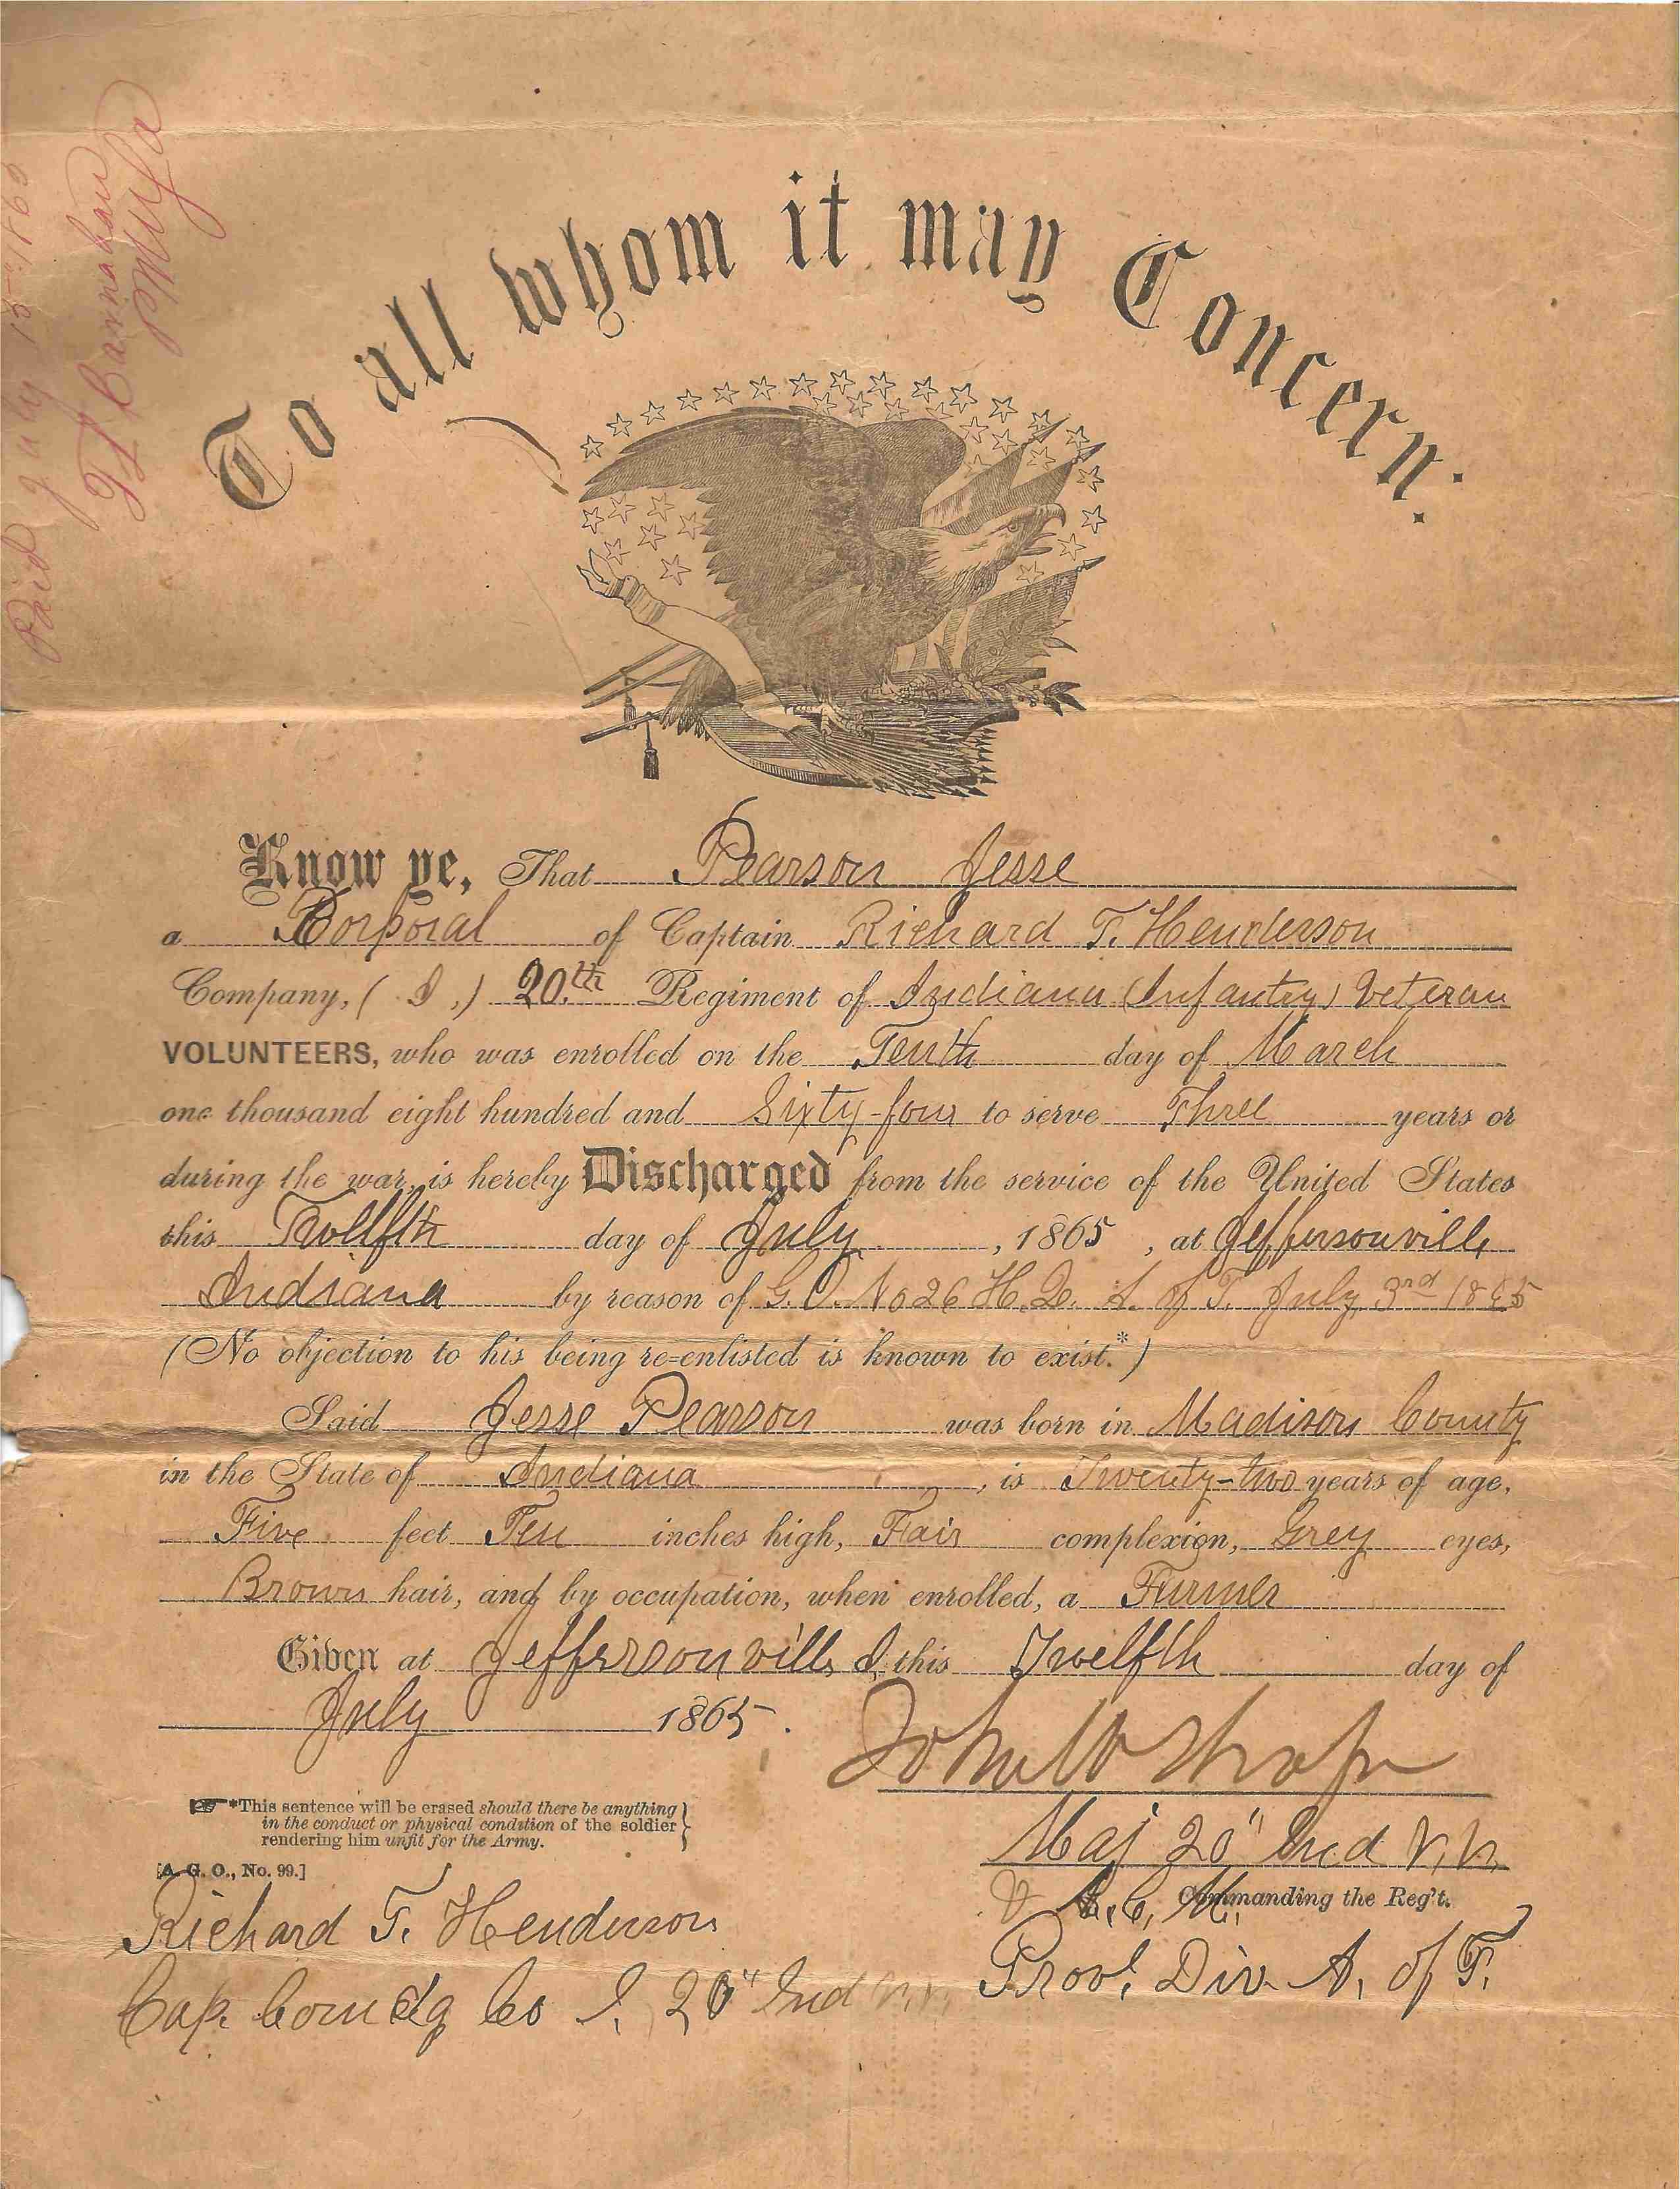 Paid July 15" 1865
To all whom it may Concern:
Know ye, That Pearson Jesse
a Corporal of Captain Richard T. Henderson
Company, ( I, ) 20.th Regiment of Indiana (Infantry) Veteran
VOLUNTEERS, who was enrolled on the Tenth day of March
one thousand eight hundred and Sixty-four to serve Three years or
during the war, is hereby Discharged from the service of the United States
this Twelfth day of July, 1865, at Jeffersonville
Indiana by reason of G.O. No 26 H.Q. A. of T. July 3rd 1865
(No objection to his being re-enlisted is known to exist.*)
Said Jesse Pearson was born in Madison County
in the State of Indiana, is Twenty-two years of age,
Five feet Ten inches high, Fair complexion, Grey eyes,
Brown hair, and by occupation, when enrolled, a Farmer
Given at Jeffersonville I. this Twelfth day of
July 1865.
*This sentence will be erased should there be anything
in the conduct or physical condition of the soldier
rendering him unfit for the Army.
[A. G. O., No. 99.]
Maj 20" Ind V.V.
Commanding the Reg't.
Richard T. Henderson
Prov. Div. A. of T.
Cap. Comdg Co I. 20" Ind